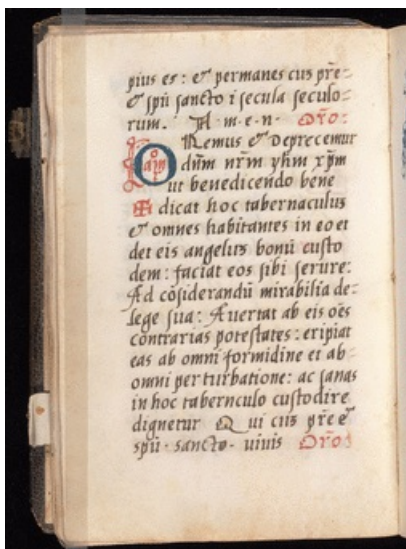 pius es: & permanes cuȝ pr̄e=
& spū sancto ī secula seculo=
rum. A·m·e·n· Or̄o:
ORemus & deprecemur
dn̄m nr̄m yhm xp̄m
ut benedicendo bene
✠ dicat hoc tabernaculuȝ
& omnes habitantes in eo et
det eis angelum bonū custo
dem: faciat eos sibi seruire:
Ad cōsiderandū mirabilia de=
lege sua: Auertat ab eis oēs
contrarias potestates: eripiat
eas ab omni formidine et ab=
omni perturbatione: ac sanas
in hoc tabernculo custodire
dignetur Qui cuȝ pr̄e &
spū· sancto· viuis Or̄o: